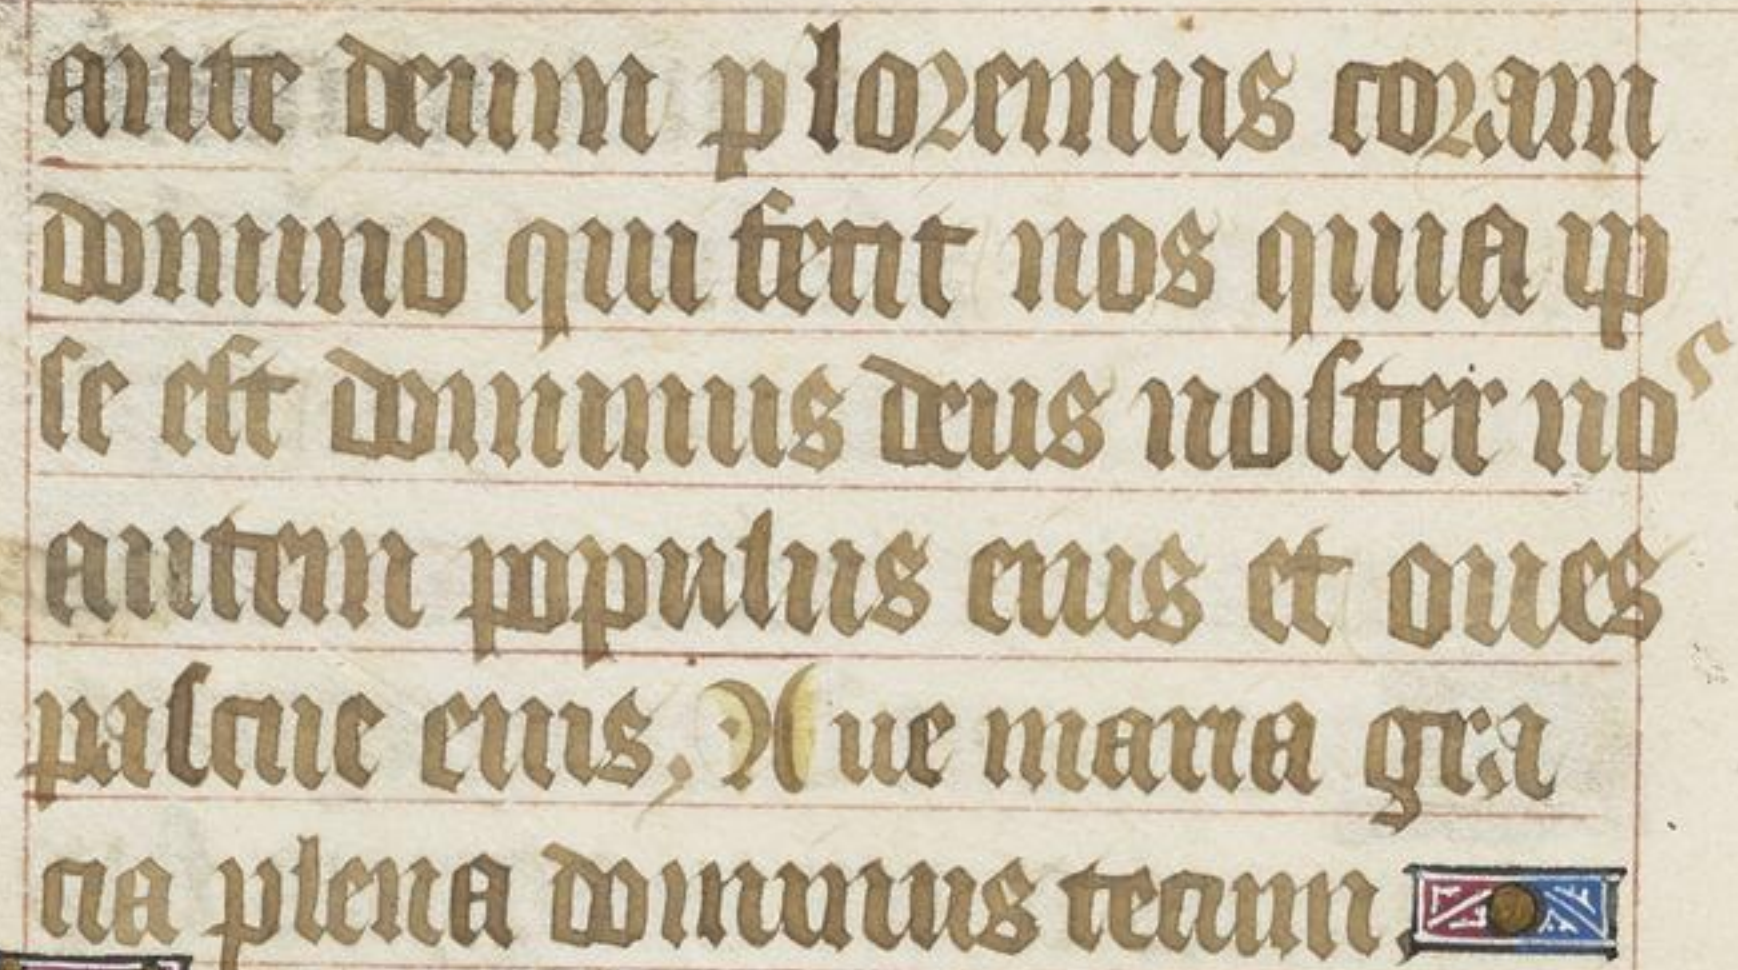 ante deum ploremus coram
domino qui fecit nos quia ip
se est dominus deus noster nos
autem populus eius et oues
pascue eius. Aue maria gra
cia plena dominus tecum.